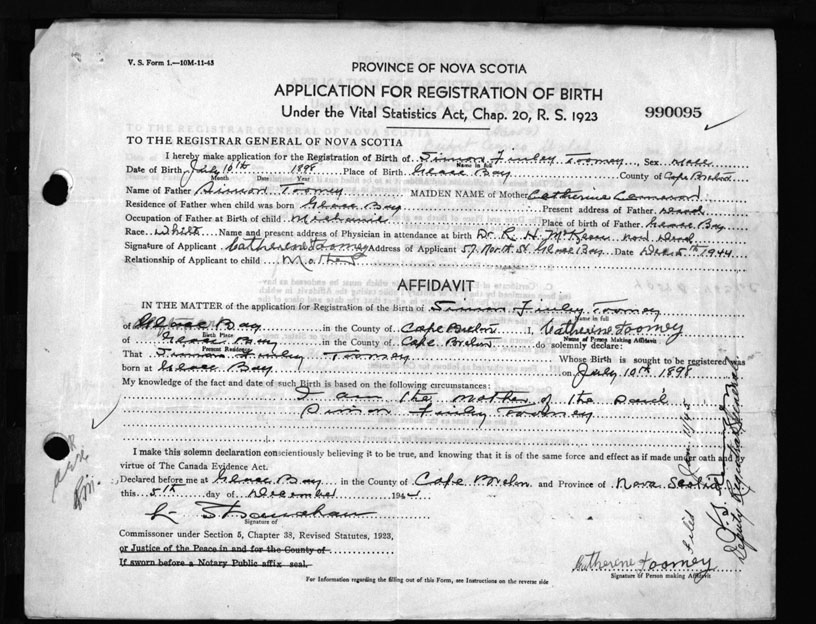 V. S. Form 1.—10M-11-43
PROVINCE OF NOVA SCOTIA
APPLICATION FOR REGISTRATION OF BIRTH
Under the Vital Statistics Act, Chap. 20, R. S. 1923
990095
TO THE REGISTRAR GENERAL OF NOVA SCOTIA
I hereby make application for the Registration of Birth of Simon Finley Toomey, Sex male
Name in full
Date of Birth July 10th 1898 Place of Birth Glace Bay County of Cape Breton
Month Date Year
Name of Father Simon Toomey MAIDEN NAME of Mother Catherine
Residence of Father when child was born Glace Bay Present address of Father Dead
Occupation of Father at Birth of child Mechanic Place of birth of Father Glace Bay
Race White Name and present address of Physician in attendance at birth Dr. R. H. McKeen now Dead
Signature of Applicant Catherene Toomey Address of Applicant 57 North St. Glace Bay Date 1944
Relationship of Applicant to child Mother
AFFIDAVIT
IN THE MATTER of the application for Registration of the Birth of Simon Finley Toomey
Name in full
of Glace Bay in the County of Cape Breton I, Catherene Toomey
Birth Place Name of Person Making Affidavit
of Glace Bay in the County of Cape Breton do solemnly declare:
Present Residence
That Simon Finley Toomey Whose Birth is sought to be registered was
born at Glace Bay on July 10th 1898
My knowledge of the fact and date of such Birth is based on the following circumstances:
I am the mother of the said
Simon Finley Toomey
I make this solemn declaration conscientiously believing it to be true, and knowing that it is of the same force and effect as if made under oath and by
virtue of The Canada Evidence Act.
Declared before me at Glace Bay in the County of Cape Breton and Province of Nova Scotia
this 5th day of December 1944
Signature of
Commissioner under Section 5, Chapter 38, Revised Statutes, 1923,
or Justice of the Peace in and for the County of
If sworn before a Notary Public affix seal.
Catherene Toomey
Signature of Person making Affidavit
For Information regarding the filling out of this Form, see Instructions on the reverse side
Filed
Deputy Registrar General